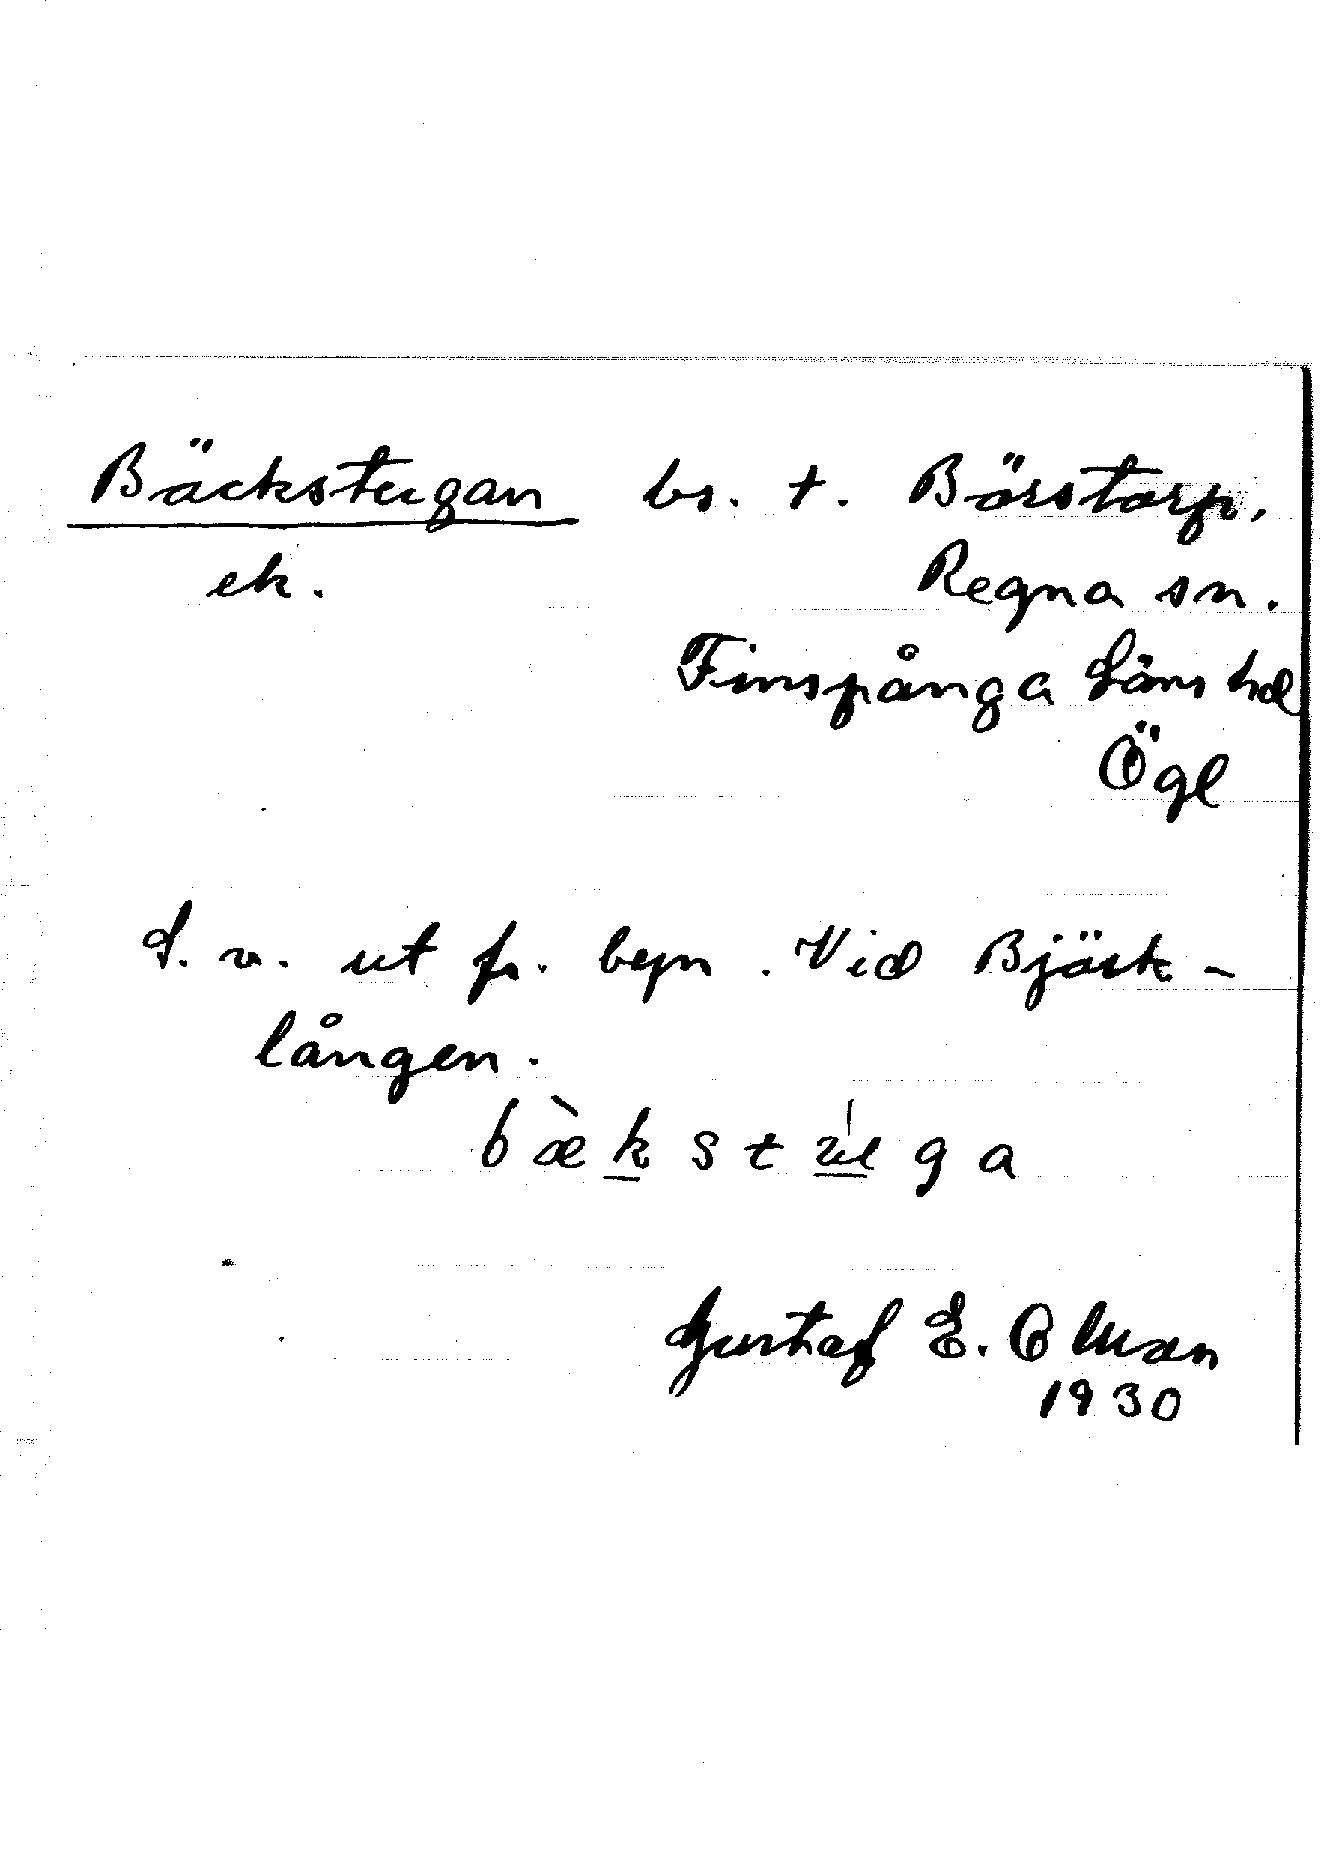 Bäckstugan bs. t. Börstorp.
ek. Regna sn.
Finspånga Läns hd
Ögl
S. v. ut fr. byn. Vid Björk-
lången.
bækst u̇ga
Gustaf E. Olman
1930